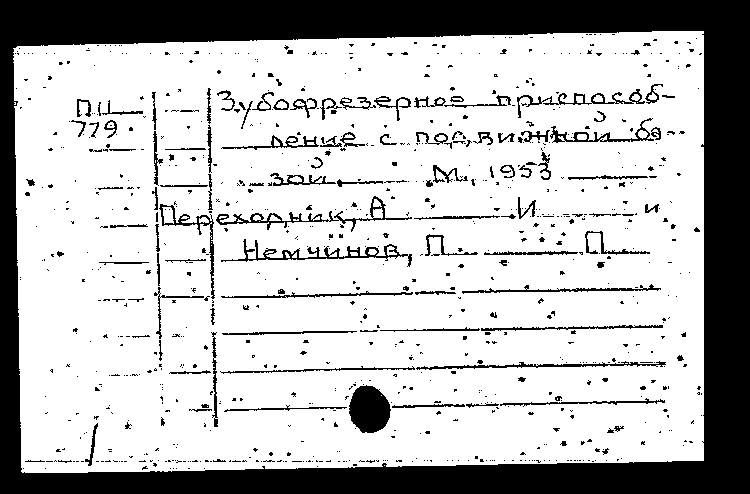 ПII
779
Зубофрезерное приспособ-
ление с подвижной ба-
зой. М., 1953
Переходник, А И и
Немчинов, П П